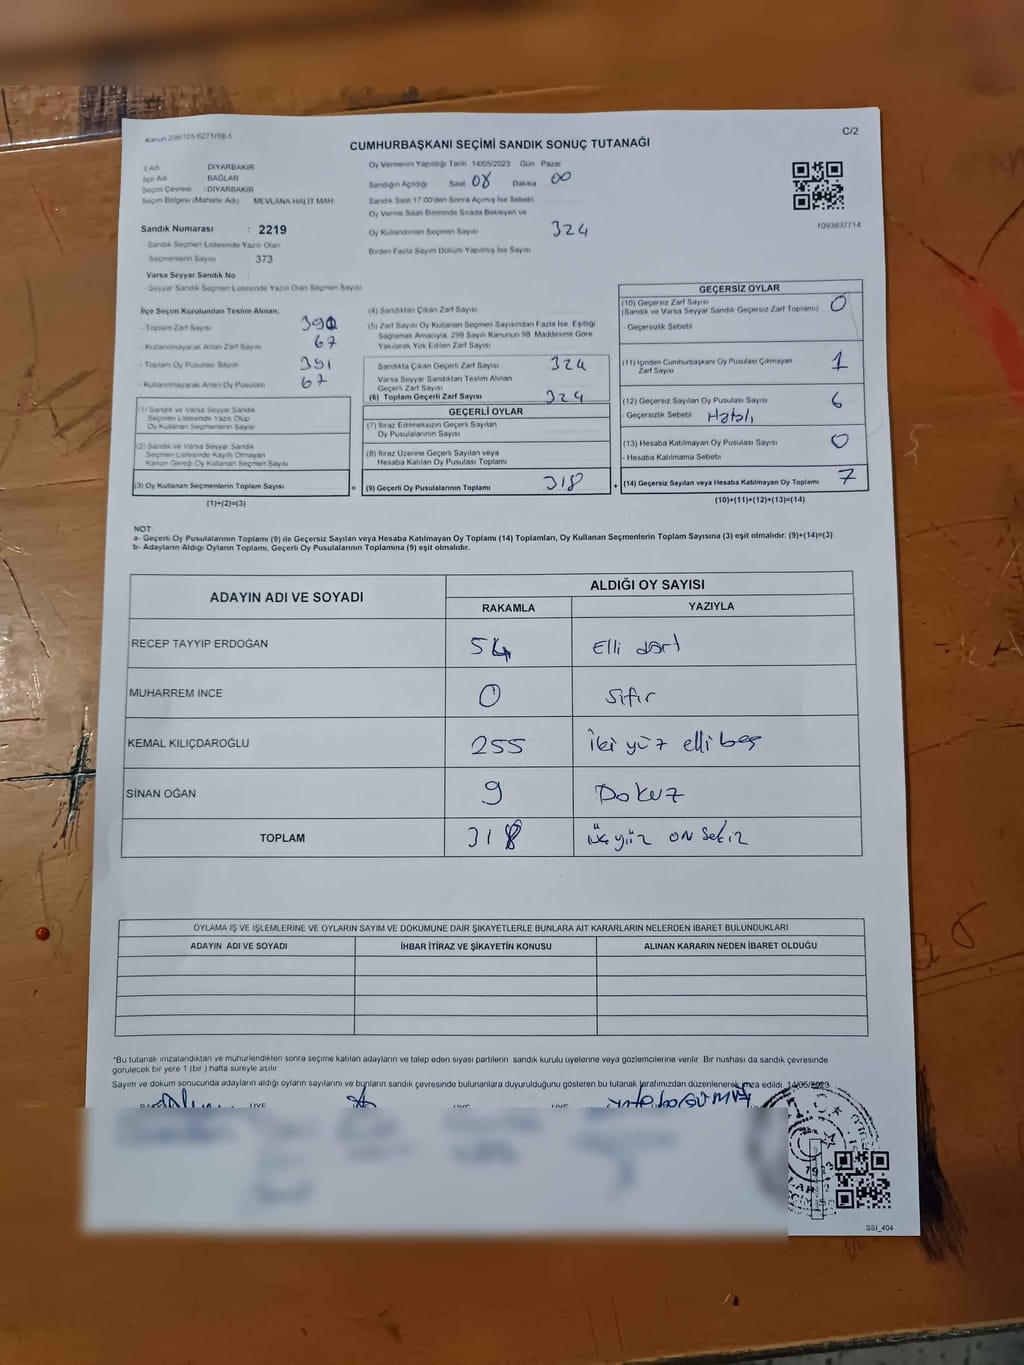 Kanun 298/105 6271/18-1
C/2
CUMHURBAŞKANI SEÇİMİ SANDIK SONUÇ TUTANAĞI
İl Adı DİYARBAKIR
İlçe Adı BAĞLAR
Seçim Çevresi : DİYARBAKIR
Seçim Bölgesi (Mahalle Adı) MEVLANA HALİT MAH.
Sandık Numarası : 2219
- Sandık Seçmen Listesinde Yazılı Olan
Seçmenlerin Sayısı 373
Varsa Seyyar Sandık No :
- Seyyar Sandık Seçmen Listesinde Yazılı Olan Seçmen Sayısı
Oy Vermenin Yapıldığı Tarih 14/05/2023 Gün Pazar
Sandığın Açıldığı Saat 08 Dakika 00
Sandık Saat 17.00'den Sonra Açımış İse Sebebi
Oy Verme Saati Bitiminde Sırada Bekleyen ve
Oy Kullandırılan Seçmen Sayısı 324
Birden Fazla Sayım Döküm Yapılmış İse Sayısı
1093837714
İlçe Seçim Kurulundan Teslim Alınan,
- Toplam Zarf Sayısı
- Kullanılmayarak Artan Zarf Sayısı 67
- Toplam Oy Pusulası Sayısı 391
- Kullanılmayarak Artan Oy Pusulası 67
(1) Sandık ve Varsa Seyyar Sandık
Seçmen Listesinde Yazılı Olup
Oy Kullanan Seçmenlerin Sayısı
(2) Sandık ve Varsa Seyyar Sandık
Seçmen Listesinde Kayıtlı Olmayan
Kanun Gereği Oy Kullanan Seçmen Sayısı
(3) Oy Kullanan Seçmenlerin Toplam Sayısı =
(1)+(2)=(3)
(4) Sandıktan Çıkan Zarf Sayısı
(5) Zarf Sayısı Oy Kullanan Seçmen Sayısından Fazla İse, Eşitliği
Sağlamak Amacıyla, 298 Sayılı Kanunun 98. Maddesine Göre
Yakılarak Yok Edilen Zarf Sayısı
Sandıkta Çıkan Geçerli Zarf Sayısı 324
Varsa Seyyar Sandıktan Teslim Alınan
Geçerli Zarf Sayısı
(6) Toplam Geçerli Zarf Sayısı 324
GEÇERLİ OYLAR
(7) İtiraz Edilmeksizin Geçerli Sayılan
Oy Pusulalarının Sayısı
(8) İtiraz Üzerine Geçerli Sayılan veya
Hesaba Katılan Oy Pusulası Toplamı
(9) Geçerli Oy Pusulalarının Toplamı 318 +
GEÇERSİZ OYLAR
(10) Geçersiz Zarf Sayısı 0
(Sandık ve Varsa Seyyar Sandık Geçersiz Zarf Toplamı)
- Geçersizlik Sebebi
(11) İçinden Cumhurbaşkanı Oy Pusulası Çıkmayan 1
Zarf Sayısı
(12) Geçersiz Sayılan Oy Pusulası Sayısı 6
- Geçersizlik Sebebi Hatalı
(13) Hesaba Katılmayan Oy Pusulası Sayısı 0
- Hesaba Katılmama Sebebi
(14) Geçersiz Sayılan veya Hesaba Katılmayan Oy Toplamı 7
(10)+(11)+(12)+(13)=(14)
NOT
a- Geçerli Oy Pusulalarının Toplamı (9) ile Geçersiz Sayılan veya Hesaba Katılmayan Oy Toplamı (14) Toplamları, Oy Kullanan Seçmenlerin Toplam Sayısına (3) eşit olmalıdır. (9)+(14)=(3)
b- Adayların Aldığı Oyların Toplamı, Geçerli Oy Pusulalarının Toplamına (9) eşit olmalıdır.
ADAYIN ADI VE SOYADI ALDIĞI OY SAYISI
RAKAMLA YAZIYLA
RECEP TAYYİP ERDOĞAN 54 Elli dört
MUHARREM İNCE 0 Sıfır
KEMAL KILIÇDAROĞLU 255 iki yüz elli beş
SİNAN OĞAN 9 Dokuz
TOPLAM 318 üç yüz on sekiz
OYLAMA İŞ VE İŞLEMLERİNE VE OYLARIN SAYIM VE DÖKÜMÜNE DAİR ŞİKAYETLERLE BUNLARA AİT KARARLARIN NELERDEN İBARET BULUNDUKLARI
ADAYIN ADI VE SOYADI İHBAR İTİRAZ VE ŞİKAYETİN KONUSU ALINAN KARARIN NEDEN İBARET OLDUĞU
*Bu tutanak imzalandıktan ve mühürlendikten sonra seçime katılan adayların ve talep eden siyasi partilerin sandık kurulu üyelerine veya gözlemcilerine verilir. Bir nüshası da sandık çevresinde
görülecek bir yere 1 (bir) hafta süreyle asılır.
Sayım ve döküm sonucunda adayların aldığı oyların sayılarını ve bunların sandık çevresinde bulunanlara duyurulduğunu gösteren bu tutanak tarafımızdan düzenlenerek imza edildi. 14/05/2023
SSI_404